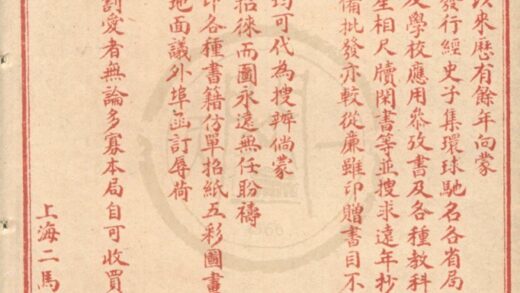 以來歷有餘年向蒙
發行經史子集環球馳名各省局
及學校應用參攷書及各種教科
星相尺牘閑書等並搜求遠年抄
備批發亦較從廉雖印贈書目不
均可代為搜辦倘蒙
招徠而圖永遠無任盼禱
印各種書籍仿單招紙五彩圖畫
地面議外埠函訂辱荷
割愛者無論多寡本局自可收買
上海二馬